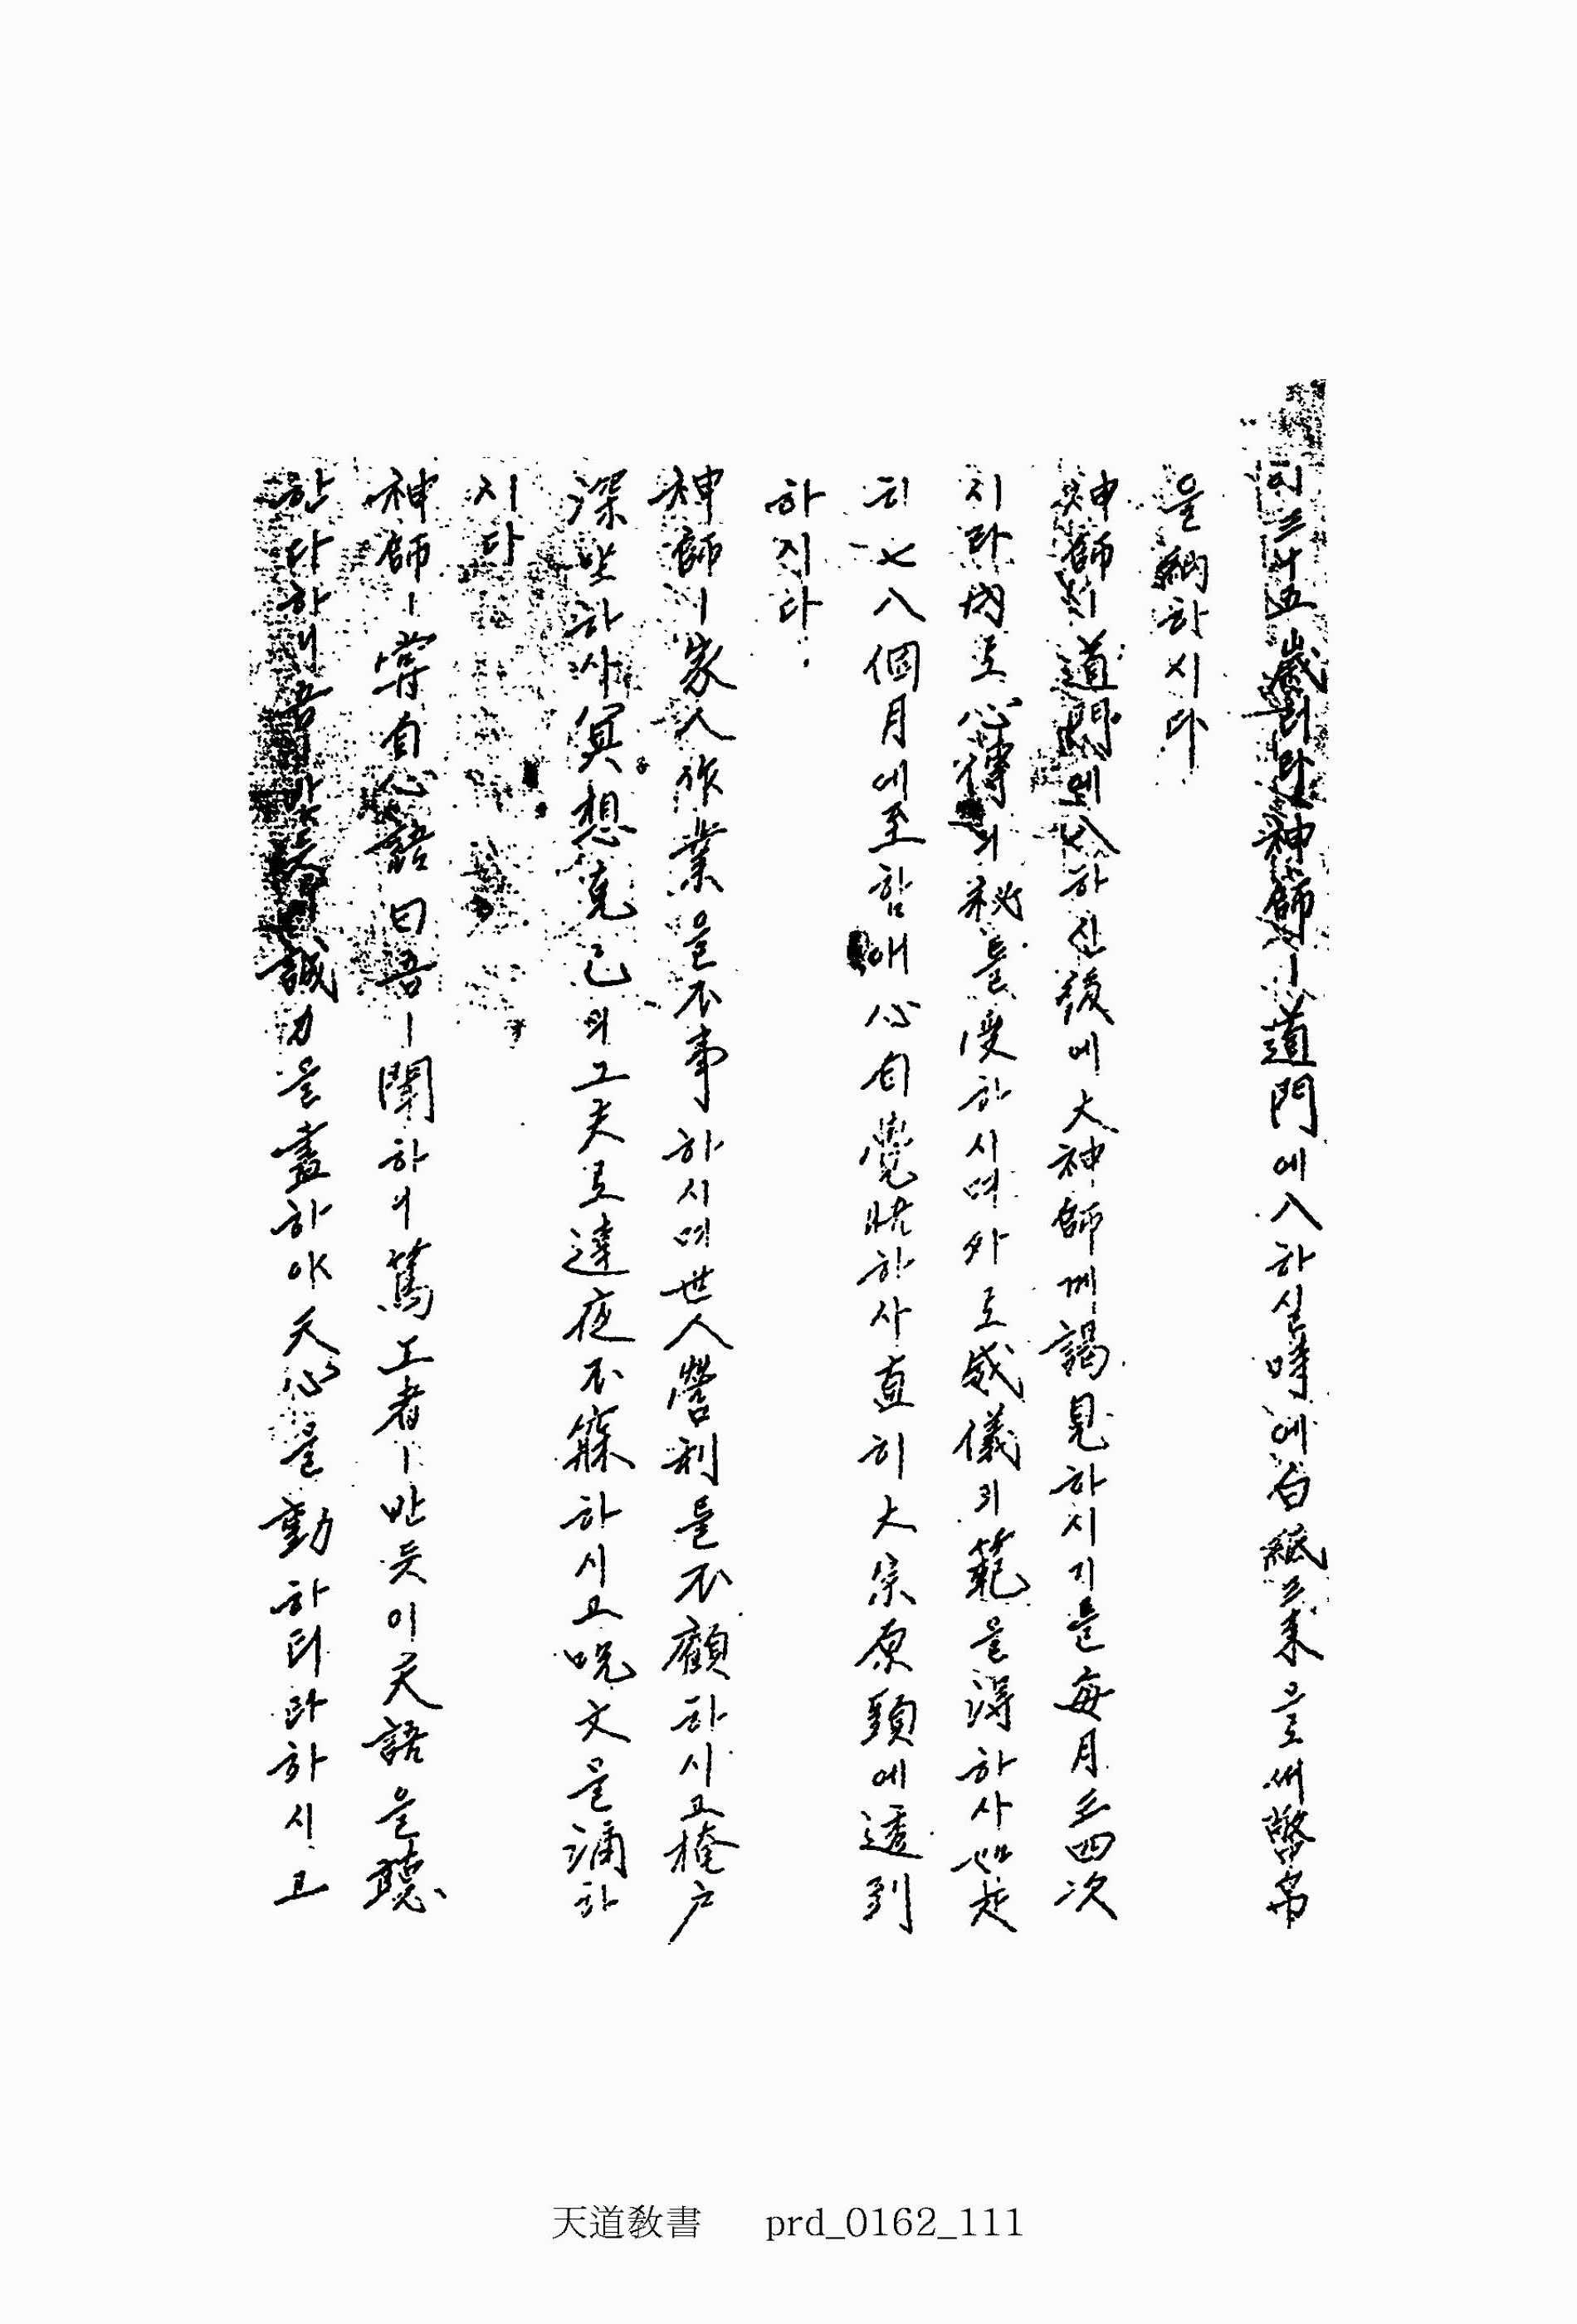 히三十五歲러라神師ㅣ道門에入하실時에白紙三束으로써幣帛
을納하시다
神師ㅣ道門에入하신後에大神師께謁見하시기를每月三四次
시라內로心傳의秘를受하시며外로威儀의範을得하사
히七八個月에至함애心自覺하사直히大宗原頭에透到
하시다
神師ㅣ家人作業을不事하시며世人營利를不顧하시고掩户
深坐하사冥想克己의工夫로達夜不寐하시고呪文을誦하
시다
神師ㅣ嘗自心語曰吾ㅣ聞하니篤工者ㅣ반듯이天語을聽
한다하니吾誠力을盡하야天心을動하리라하시고
天道敎書 prd_0162_111